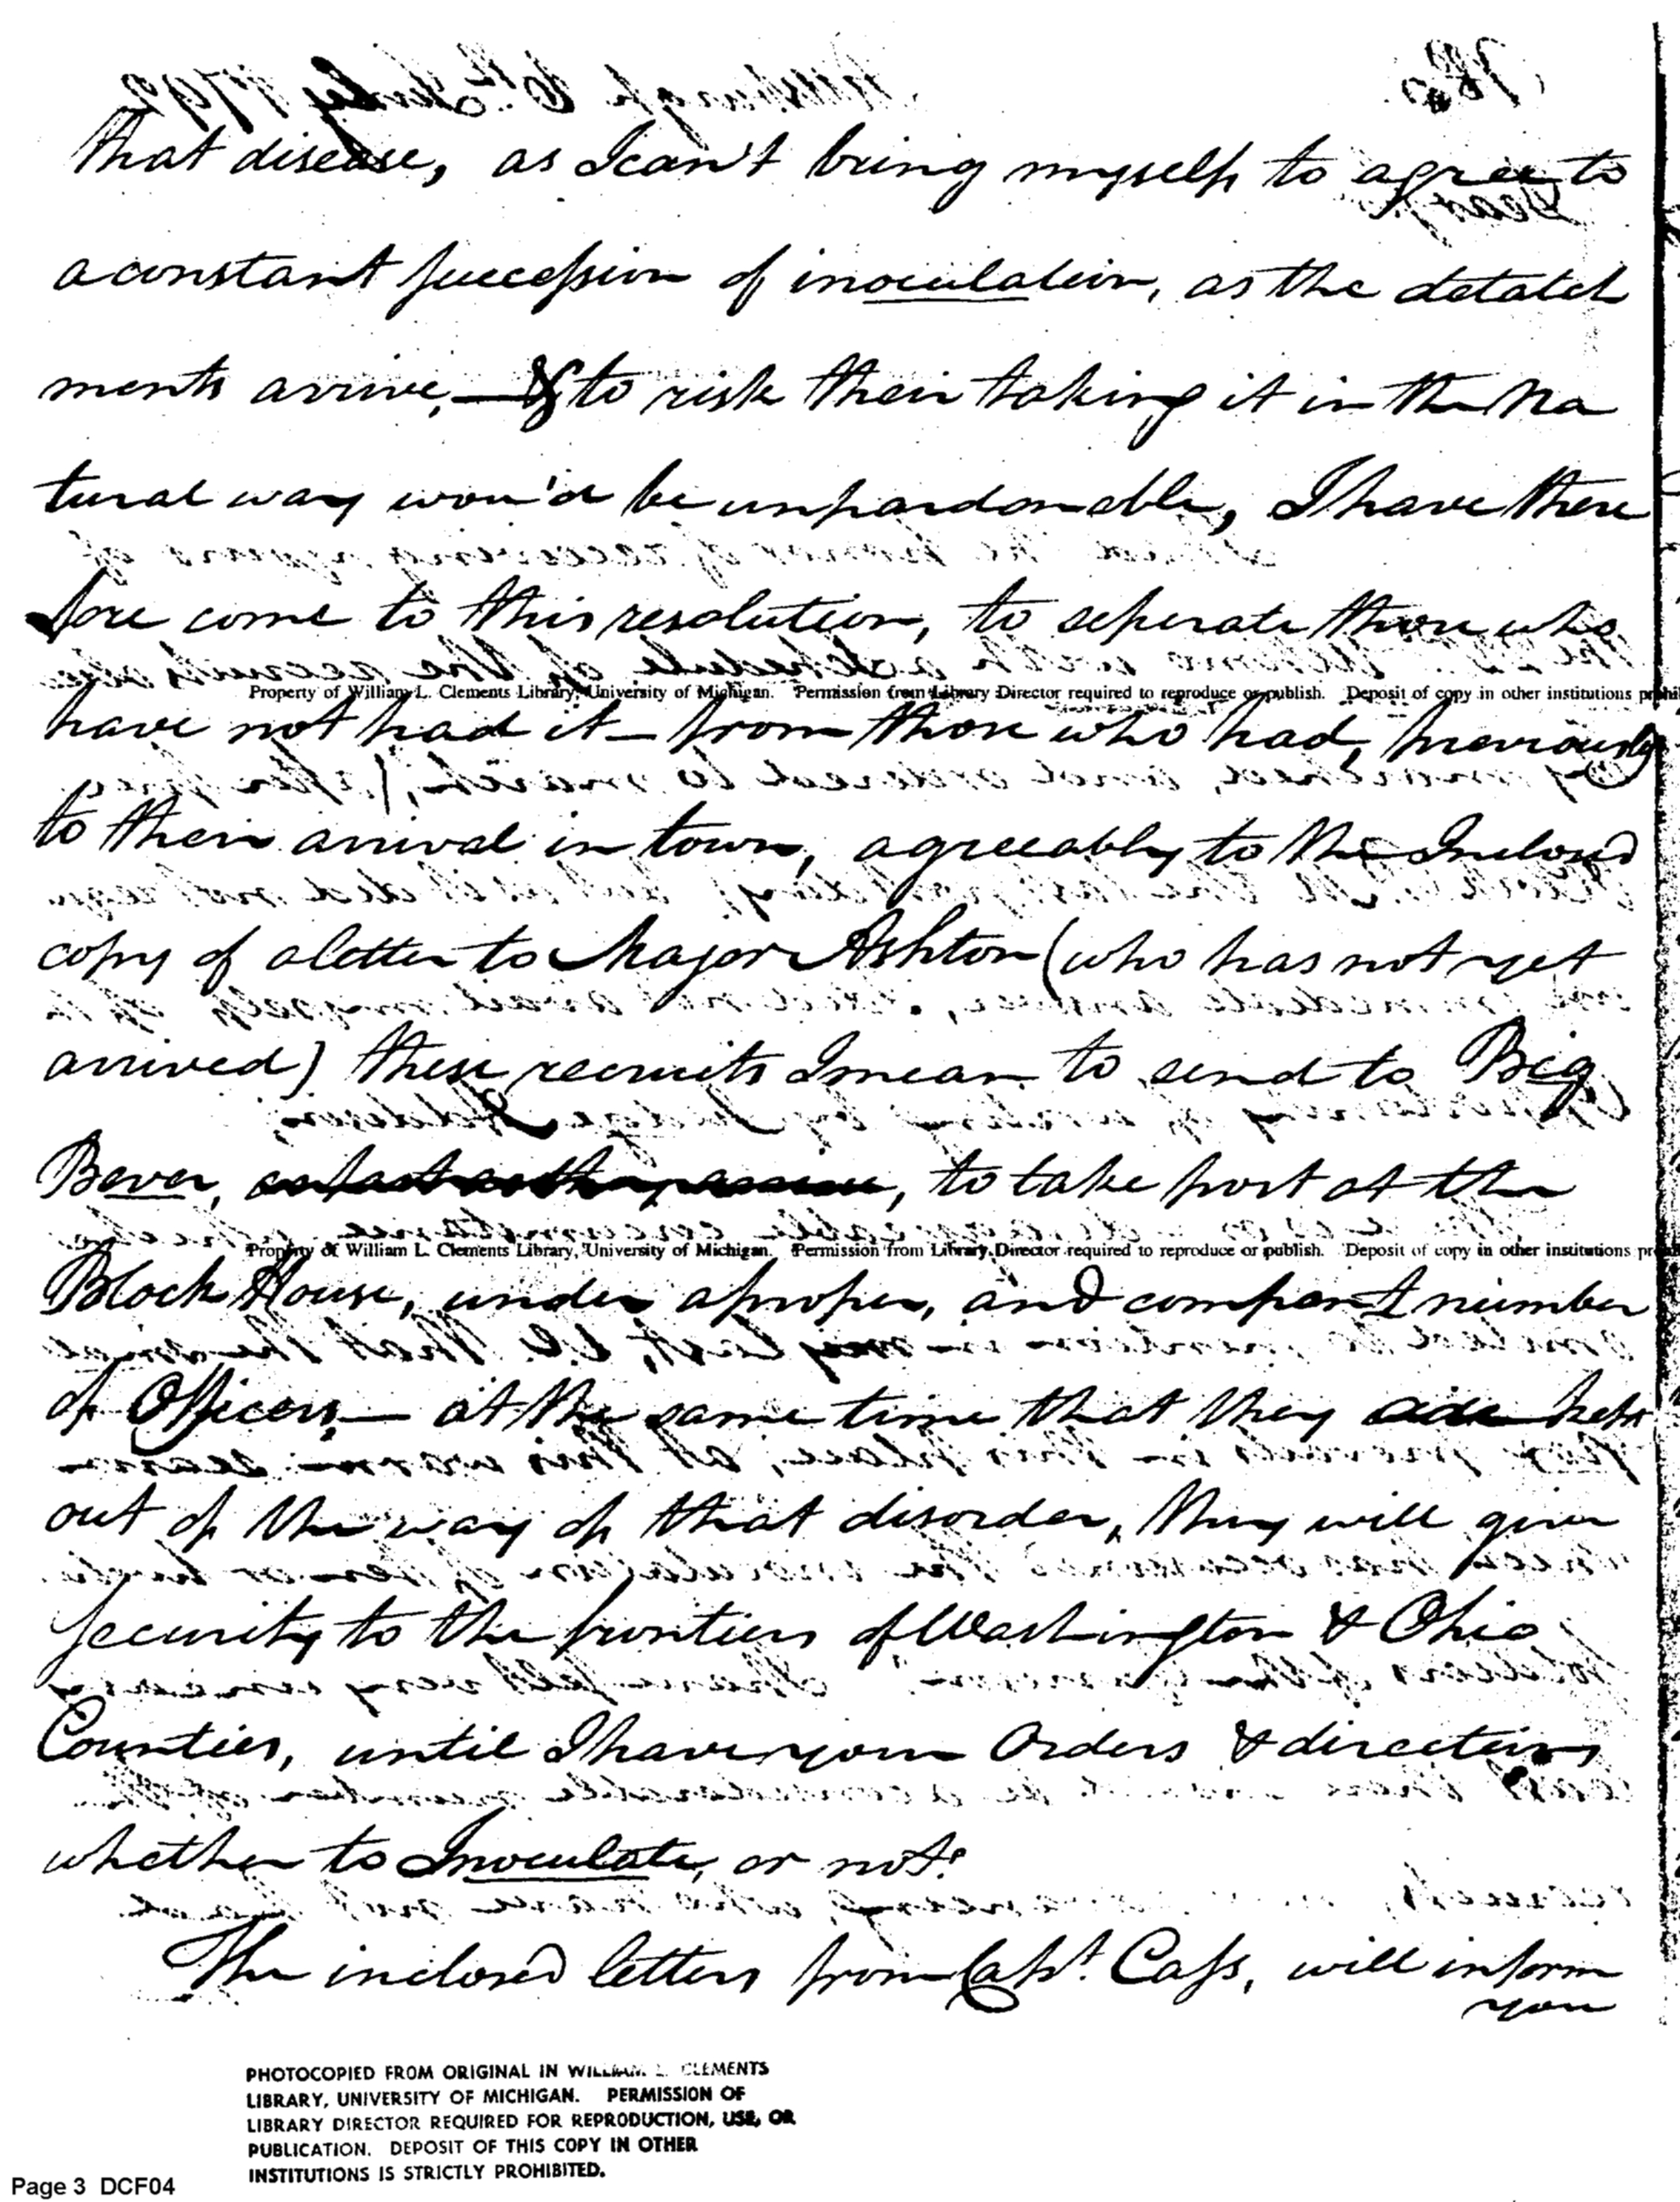 that disease, as I can't bring myself to agree to
a constant succession of inoculation, as the detatch
ments arrive, — & to risk their taking it in the na
tural way wou'd be unpardonable, I have there
fore come to this resolution, to seperate those who
Property of William L. Clements Library, University of Michigan. Permission from Library Director required to reproduce or publish. Deposit of copy in other institutions prohi
have not had it — from those who had, previously
to their arrival in town, agreeably to the Inclosed
copy of a letter to Major Ashton (who has not yet
arrived) these recruits I mean to send to Big
Bever, as fast as they arrive, to take post at the
Property of William L. Clements Library, University of Michigan. Permission from Library Director required to reproduce or publish. Deposit of copy in other institutions pro
Block House, under a proper, and compent number
of Officers, — at the same time that they are kept
out of the way of that disorder, they will give
security to the frontiers of Washington & Ohio
Counties, until I have your Orders & directions
whether to Inoculate, or not.
The inclosed letters from Capt. Cass, will inform
you
PHOTOCOPIED FROM ORIGINAL IN WILLIAM L. CLEMENTS
LIBRARY, UNIVERSITY OF MICHIGAN. PERMISSION OF
LIBRARY DIRECTOR REQUIRED FOR REPRODUCTION, USE, OR
PUBLICATION. DEPOSIT OF THIS COPY IN OTHER
INSTITUTIONS IS STRICTLY PROHIBITED.
Page 3 DCF04